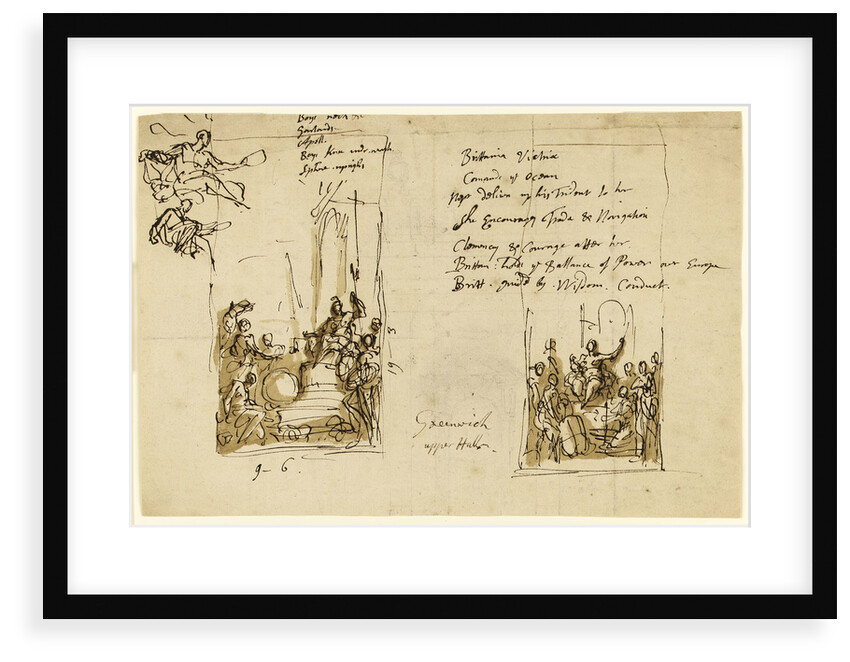 Boys
Garlands
Apoll.
Boys
Brittania Victrix
Comands yͤ Ocean
Nept delivers up his Trident to her
She Encourages Trade & Navigation
Clemency & Courage after her
Brittan: holds yͤ Ballance of Power over Europe
Britt. guided by Wisdom. Conduct.
19 3
Greenwich
upper Hall.
9 – 6.